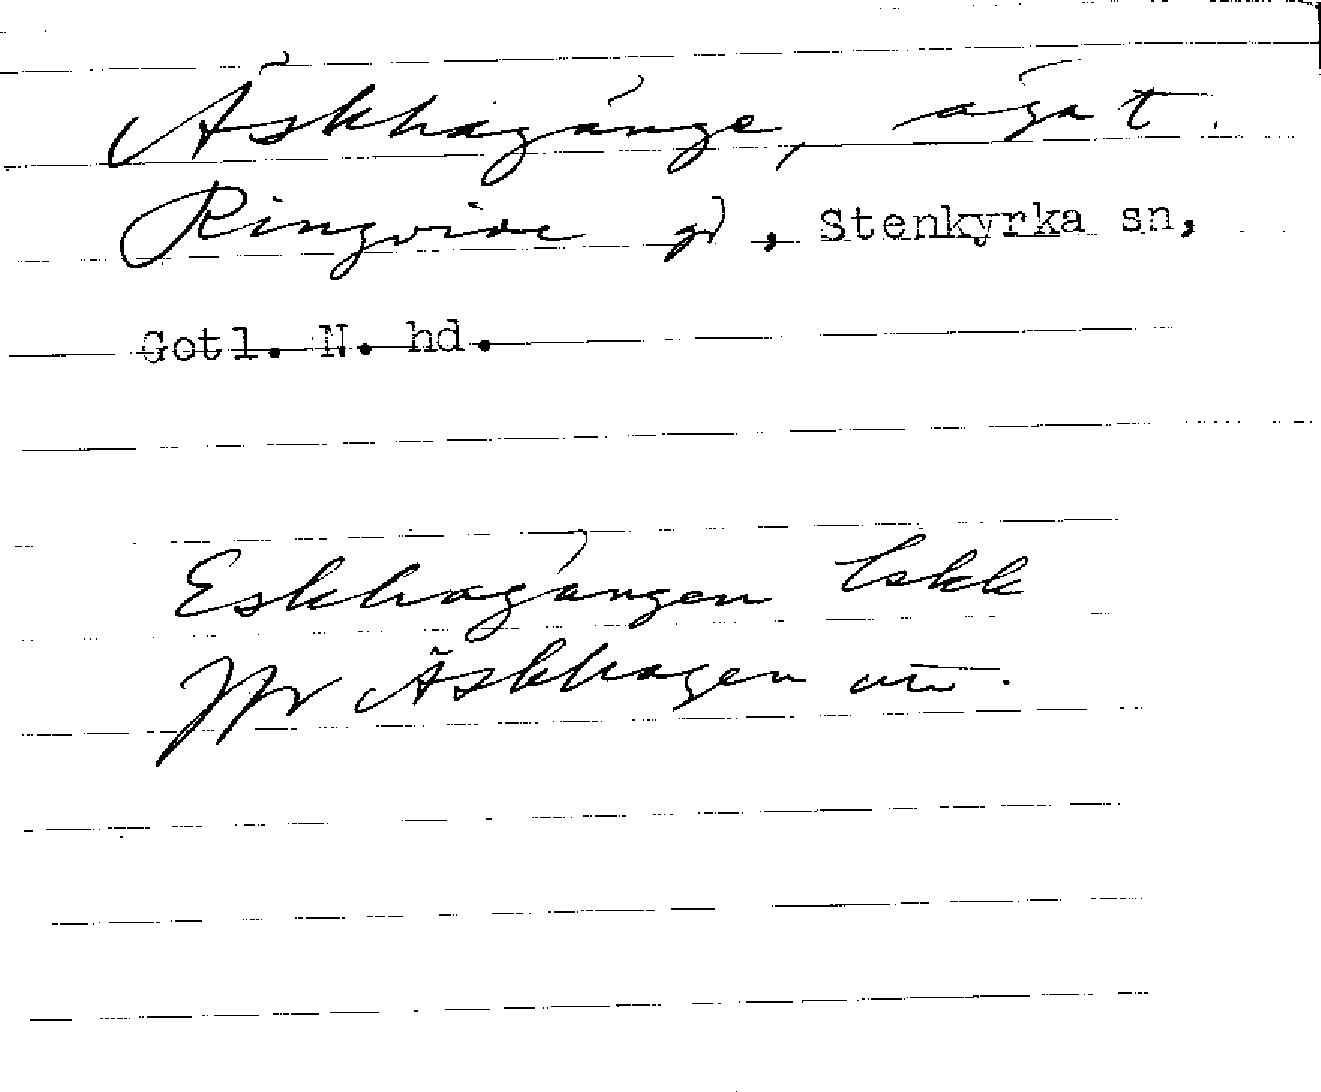 Äskhagänge, äga t.
Ringvide gd, Stenkyrka sn,
Gotl. N. hd.
Eskhagängen Eskk
Jfr Äskhagen utr.